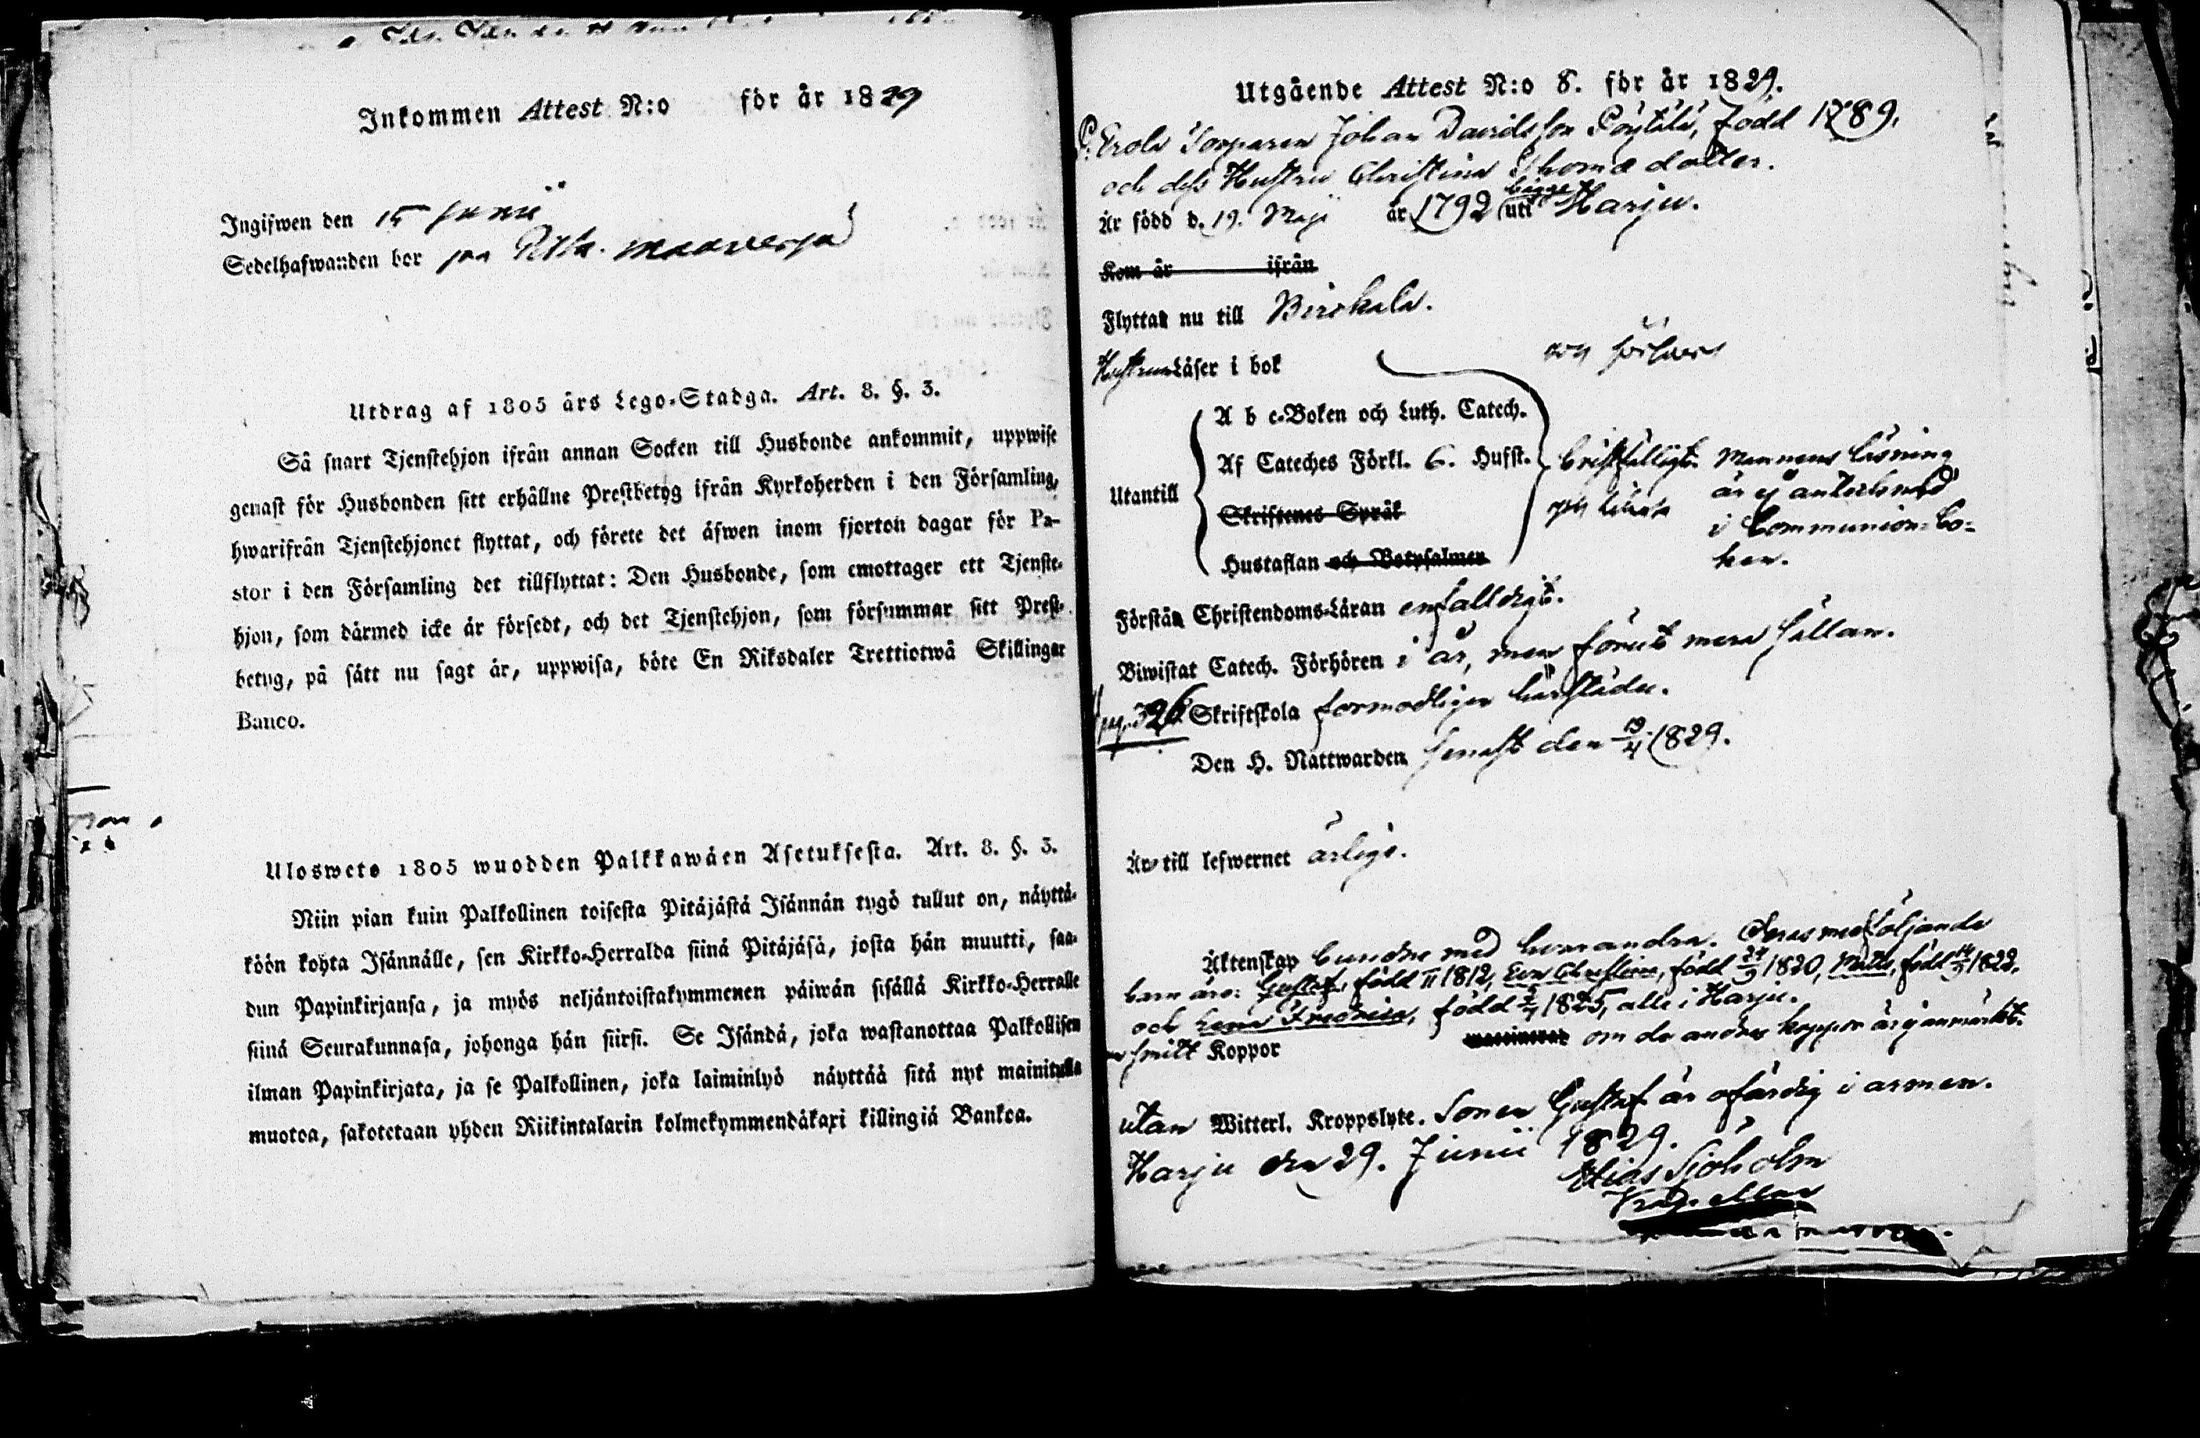 Inkommen Attest N:o för år 1829
Ingifwen den 15 Junii
Sedelhafwanden bor
Utdrag af 1805 års Lego-Stadga. Art. 8. §. 3.
Så snart Tjenstehjon ifrån annan Socken till Husbonde ankommit, uppwise
genast för Husbonden sitt erhållne Prestbetyg ifrån Kyrkoherden i den Församling,
hwarifrån Tjenstehjonet flyttat, och förete det äfwen inom fjorton dagar för Pa-
stor i den Församling det tillflyttat: Den Husbonde, som emottager ett Tjenste-
hjon, som därmed icke är försedt, och det Tjenstehjon, som försummar sitt Prest-
betyg, på sätt nu sagt är, uppwisa, böte En Riksdaler Trettiotwå Skillingar
Banco.
Ulosweto 1805 wuodden Palkkawäen Asetuksesta. Art. 8. §. 3.
Niin pian kuin Palkollinen toisesta Pitäjästä Isännän tygö tullut on, näyttä-
köön kohta Isännälle, sen Kirkko-Herralda siinä Pitäjäsä, josta hän muutti, saa-
dun Papinkirjansa, ja myös neljäntoistakymmenen päiwän sisällä Kirkko-Herralle
siinä Seurakunnasa, johonga hän siirsi. Se Isändä, joka wastanottaa Palkollisen
ilman Papinkirjata, ja se Palkollinen, joka laiminlyö näyttää sitä nyt mainitulla
muotoa, sakotetaan yhden Riikintalarin kolmekymmendäkaxi killingiä Bankoa.
Utgående Attest N:o 8. för år 1829.
Torparen Johan Davidsson född 1789.
och dess Hustru Christina Thomæ dotter.
Är född d. 19. Maji år 1792 uti bägge Harju.
Kom år ifrån
Flyttar nu till Birckala.
Hustrun Läser i bok
A b c-Boken och Luth. Catech.
Af Cateches Förkl. 6. Hufst. bristfälligt. Mannens läsning
Utantill är ej antecknad
Skriftenes Språk i Communion-bo-
Hustaflan och Botpsalmer ken.
Förstår Christendoms-Läran enfalldigt.
Biwistat Catech. Förhören i år, men förut mera sällan.
pag. 326. Skriftskola förmodligen härstädes.
Den H. Nattwarden senast den 19/4 1829.
Är till lefwernet ärliga.
Äktenskap bundne med hvarandra. Deras medföljande
barn äro: Gustaf, född 1812, Eva Christina, född 1820, Matts, född 1822,
och Lena Fredrica, född 1825, alla i Harju.
Koppor waccinerad om de andras koppor är ej anmärkt.
utan Witterl. Kroppslyte. Sonen Gustaf är ofärdig i armen.
Harju den 29. Junii 1829.
Elias Sjöholm